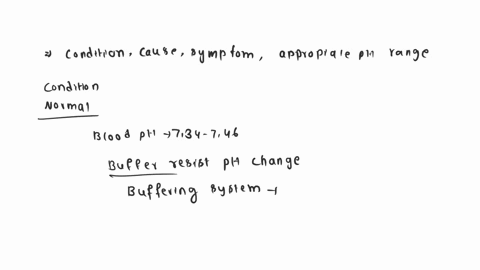 ⇒ Condition, Cause, Symptom, appropiate pH range
Condition
Normal
Blood pH → 7.34-7.46
Buffer resist pH change
Buffering system →